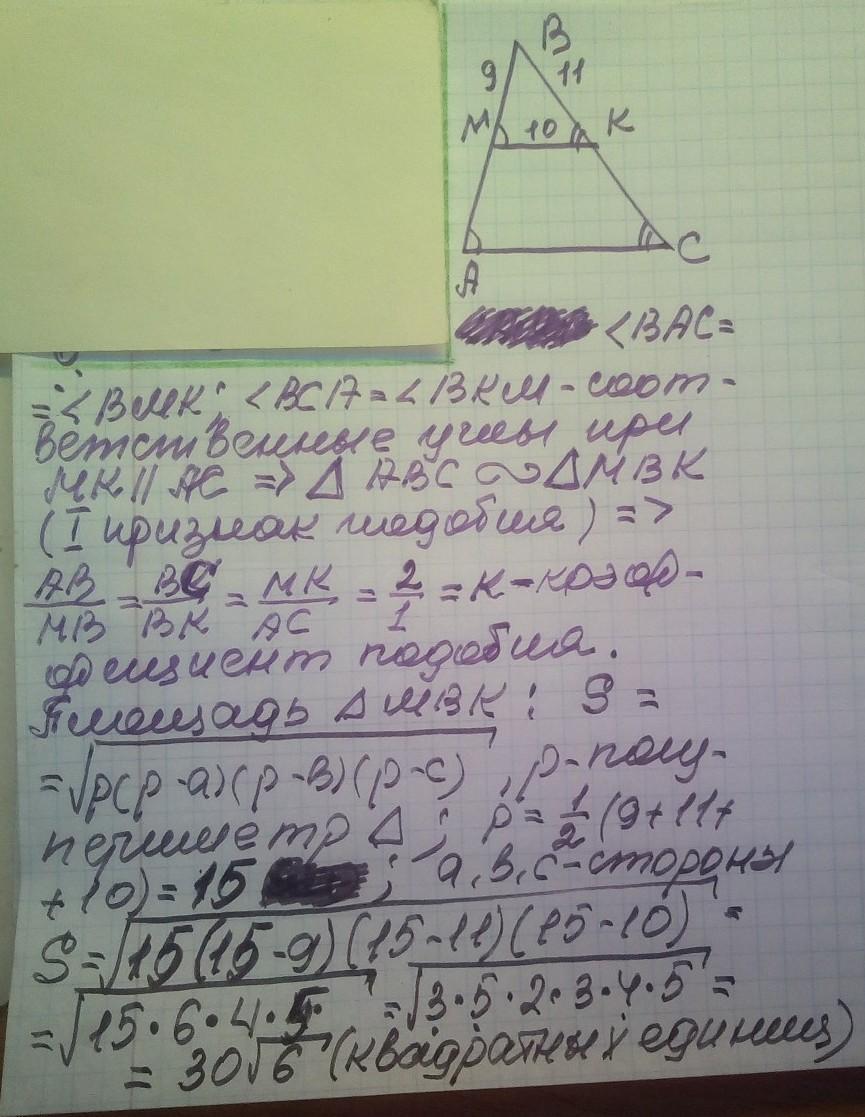 B
9 11
M 10 K
A C
<BAC=
=<BMK; <BCA=<BKM-соот-
ветственные углы при
MK || AC => Δ ABC ∾ ΔMBK
(I признак подобия) =>
AB/MB = BC/BK = MK/AC = 2/1 = K-коэф-
фициент подобия.
Площадь ΔMBK: S =
=√p(p-a)(p-в)(p-c), p-полу-
периметр Δ; p=1/2(9+11+
+10)=15; a,в,c-стороны
S=√15(15-9)(15-11)(15-10) =
=√15·6·4·5 =√3·5·2·3·4·5 =
= 30√6 (квадратных единиц)